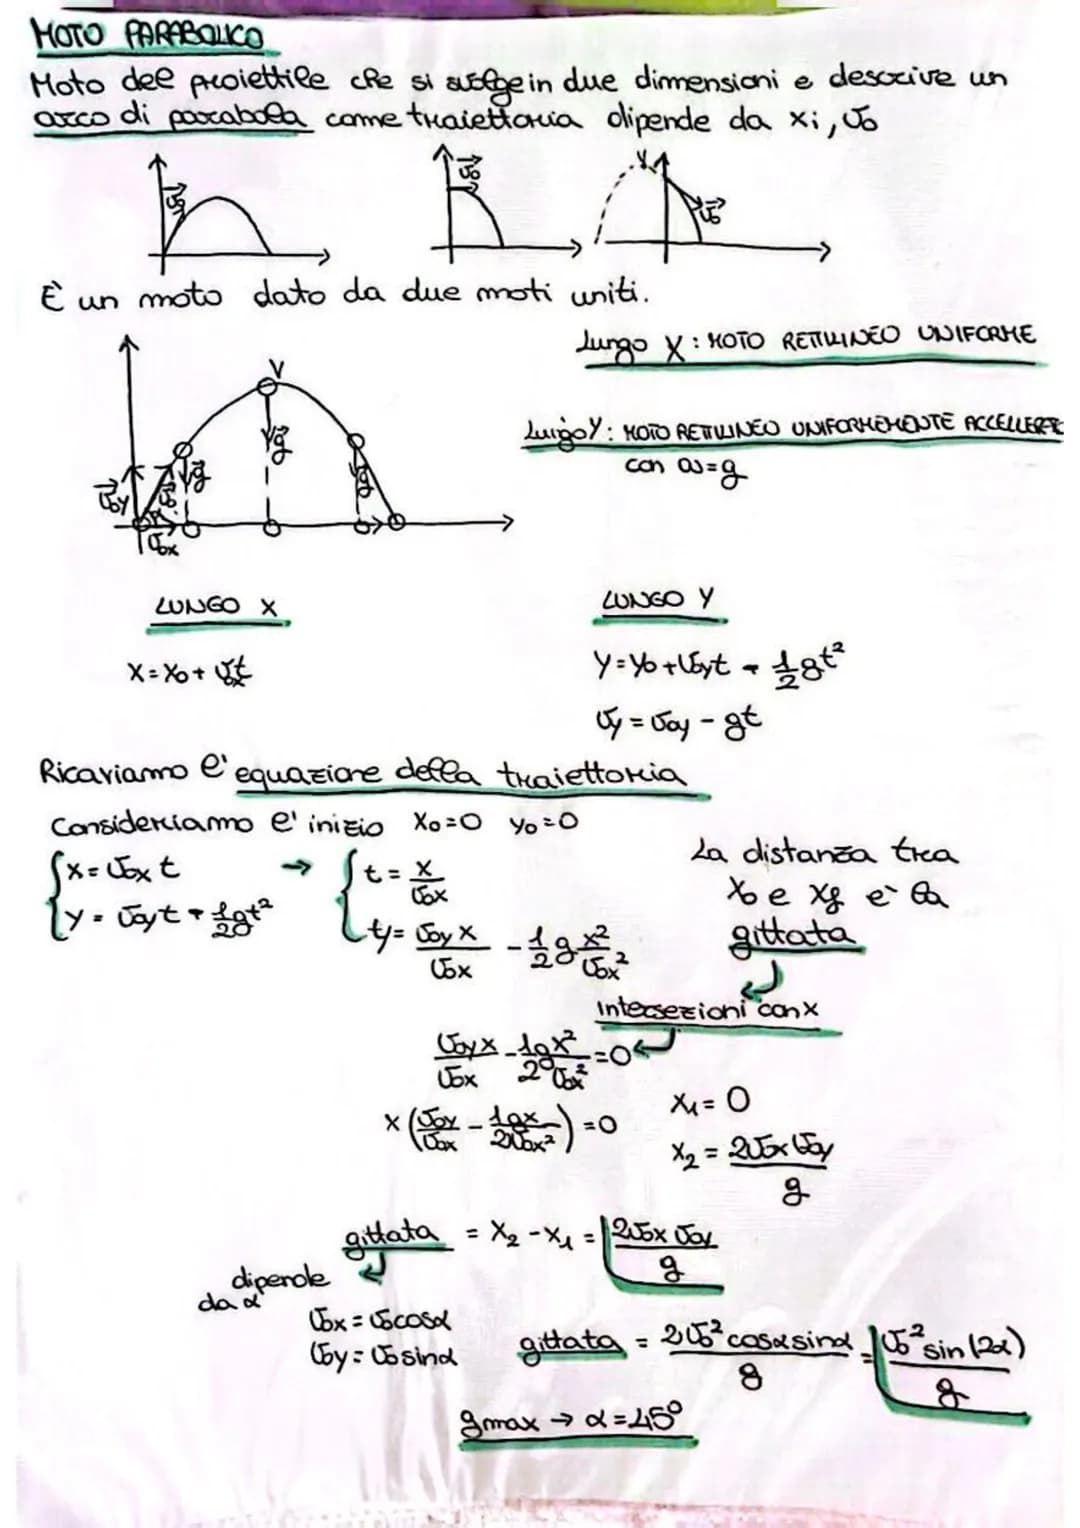 MOTO PARABOLICO
Moto del proiettile che si svolge in due dimensioni e descrive un
arco di parabola come traiettoria dipende da xi, v₀
v⃗₀
v⃗₀
V
v⃗₀
È un moto dato da due moti uniti.
Lungo X: MOTO RETTILINEO UNIFORME
Lungo Y: MOTO RETTILINEO UNIFORMEMENTE ACCELLERATO
con a=g
V
g⃗
g⃗
g⃗
v⃗₀y
v⃗₀
α
v⃗₀x
LUNGO X
LUNGO Y
x = x₀ + v₀ₓt
y = y₀ + v₀yt - ½gt²
vy = v₀y - gt
Ricaviamo l'equazione della traiettoria
Consideriamo l'inizio x₀=0 y₀=0
{x = v₀ₓ t → {t = x/v₀ₓ
{y = v₀yt - ½gt² {y = v₀y x/v₀ₓ - ½ g x²/v₀ₓ²
La distanza tra
x₀ e xf è la
gittata
Intersezioni con x
v₀y x/v₀ₓ - ½ g x²/v₀ₓ² = 0
x (v₀y/v₀ₓ - 1gx/2v₀ₓ²) = 0
x₁ = 0
x₂ = 2v₀ₓv₀y/g
gittata = x₂ - x₁ = 2v₀ₓ v₀y/g
dipende
da α
v₀ₓ = v₀cosα
v₀y = v₀sinα
gittata = 2v₀² cosα sinα/g = v₀² sin(2α)/g
gmax → α = 45°